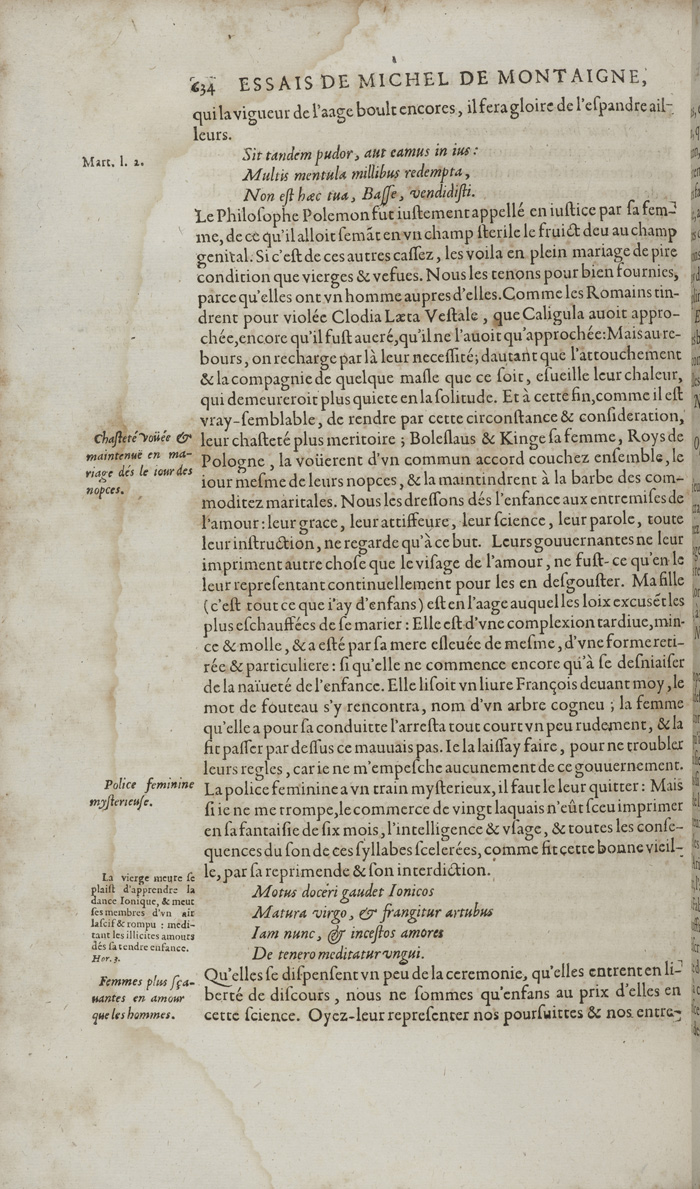 634 ESSAIS DE MICHEL DE MONTAIGNE,
qui la vigueur de l'aage boult encores, il fera gloire de l'eſpandre ail-
leurs.
Mart. l. 2.
Sit tandem pudor, aut eamus in ius:
Multis mentula millibus redempta,
Non eſt hæc tua, Baſſe, vendidiſti.
Le Philoſophe Polemon fut iuſtement appellé en iuſtice par ſa fem-
me, de ce qu'il alloit ſemãt en vn champ ſterile le fruict deu au champ
genital. Si c'eſt de ces autres caſſez, les voila en plein mariage de pire
condition que vierges & vefues. Nous les tenons pour bien fournies,
parce qu'elles ont vn homme aupres d'elles. Comme les Romains tin-
drent pour violée Clodia Læta Veſtale, que Caligula auoit appro-
chée, encore qu'il fuſt aueré, qu'il ne l'auoit qu'approchée: Mais au re-
bours, on recharge par là leur neceſſité; dautant que l'attouchement
& la compagnie de quelque maſle que ce ſoit, eſueille leur chaleur,
qui demeureroit plus quiete en la ſolitude. Et à cette fin, comme il eſt
vray-ſemblable, de rendre par cette circonſtance & conſideration,
Chaſteté voüée &
maintenuë en ma-
riage dés le iour des
nopces.
leur chaſteté plus meritoire; Boleſlaus & Kinge ſa femme, Roys de
Pologne, la voüerent d'vn commun accord couchez enſemble, le
iour meſme de leurs nopces, & la maintindrent à la barbe des com-
moditez maritales. Nous les dreſſons dés l'enfance aux entremiſes de
l'amour: leur grace, leur attiffeure, leur ſcience, leur parole, toute
leur inſtruction, ne regarde qu'à ce but. Leurs gouuernantes ne leur
impriment autre choſe que le viſage de l'amour, ne fuſt-ce qu'en le
leur repreſentant continuellement pour les en deſgouſter. Ma fille
(c'eſt tout ce que i'ay d'enfans) eſt en l'aage auquel les loix excusẽt les
plus eſchauffées de ſe marier: Elle eſt d'vne complexion tardiue, min-
ce & molle, & a eſté par ſa mere eſleuée de meſme, d'vne forme reti-
rée & particuliere: ſi qu'elle ne commence encore qu'à ſe deſniaiſer
de la naïueté de l'enfance. Elle liſoit vn liure François deuant moy, le
mot de fouteau s'y rencontra, nom d'vn arbre cogneu; la femme
qu'elle a pour ſa conduitte l'arreſta tout court vn peu rudement, & la
fit paſſer par deſſus ce mauuais pas. Ie la laiſſay faire, pour ne troubler
leurs regles, car ie ne m'empeſche aucunement de ce gouuernement.
Police feminine
myſterieuſe.
La police feminine a vn train myſterieux, il faut le leur quitter: Mais
ſi ie ne me trompe, le commerce de vingt laquais n'eût ſceu imprimer
en ſa fantaiſie de ſix mois, l'intelligence & vſage, & toutes les conſe-
quences du ſon de ces ſyllabes ſcelerées, comme fit cette bonne vieil-
le, par ſa reprimende & ſon interdiction.
La vierge meure ſe
plaiſt d'apprendre la
dance Ionique, & meut
ſes membres d'vn air
laſcif & rompu: medi-
tant les illicites amours
dés ſa tendre enfance.
Hor. 3.
Motus doceri gaudet Ionicos
Matura virgo, & frangitur artubus
Iam nunc, & inceſtos amores
De tenero meditatur vngui.
Femmes plus ſça-
uantes en amour
que les hommes.
Qu'elles ſe diſpenſent vn peu de la ceremonie, qu'elles entrent en li-
berté de diſcours, nous ne ſommes qu'enfans au prix d'elles en
cette ſcience. Oyez-leur repreſenter nos pourſuittes & nos entre-